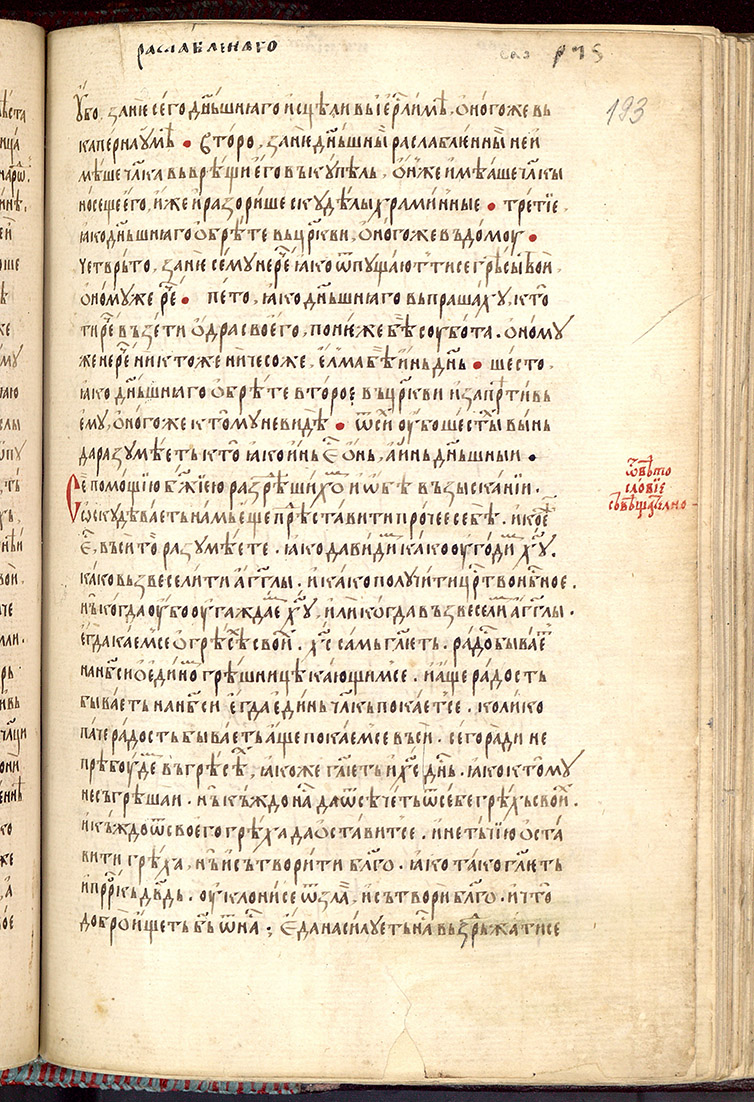 раслабленаго
193
ѹбо, занѥ сего дн҃ьшнꙗго исцѣли въ іерⷭлимѣ, оного же въ
капернаумѣ • Второ, занѥ дн҃ьшнꙑ раслаблѥннꙑ не и
мѣше чл҃ка въврѣщи ѥго въ кꙋпѣль, онже имѣаше чл҃кꙑ
носещеѥго, иже и разорише скꙋдѣлꙑ храминные • третїе,
ꙗко дн҃ьшнꙗго обрѣте въ цр҃кви, оного же въ домоу •
четврьто, занѥ семꙋ не реⷱ҇ ꙗко ѿпꙋщаютⸯ ти се грѣсы твои,
ономꙋ же реⷱ҇ • пето, ꙗко дн҃ьшнꙗго въпрашахꙋ, кто
ти реⷱ҇ възети одра своѥго, понѥже бѣ соубота. ономꙋ
же не реⷱ҇ никтоже ничесоже, ѥлма бѣ инь дн҃ь • шесто,
ꙗко дн҃ьшнꙗго обрѣте второе въ цр҃кви и запрѣти въ
ѥмꙋ, оного же к томꙋ не видѣ • ѿ сиⷯ оубо шестꙑ вынь
да разꙋмѣеть кто ꙗко инь ѥⷭ онь, а инь дн҃ьшнꙑи •
Се помощїю бж҃їею разрѣшихоⷨ и ѡбѣ възысканїи.
ѡскꙋдѣваѥть намь ѥще прѣⷣставити прочее себѣ. и коѥ
ѥⷭ, въси то разꙋмѣете. ꙗко да видиⷨ како оугодиⷨ хⷭꙋ.
како възвеселити агг҃лы. и како полꙋчити црⷭтво нбⷭное.
нь когда оубо оугаждаеⷨ хⷭꙋ, или когда възвеселиⷨ агг҃лы.
ѥгда каѥмсе о грѣсѣⷯ своиⷯ. хⷭ самь гл҃ѥть. радоⷭ бываѥⷮ
на нбⷭи о ѥдиноⷨ грѣшницѣ кающимсе. и аще радость
бываѥть на нбⷭи ѥгда ѥдинь чл҃кь покаѥтсе. колико
паче радость бываѥть аще покаѥмсе въси. сего ради не
прѣбоудеⷨ въ грѣсѣⷯ, ꙗкоже гл҃ѥть и хⷭ днⷭь. ꙗко к томꙋ
не съгрѣшаи. нь къждо наⷭ да ѿсѣчеть ѿ себе грѣхь свои.
и къждо ѿ своѥго грѣха да оставитсе. и не тьїю оста
вити грѣха, нь и сътворити бл҃го. ꙗко тако гл҃ѥть
и прⷪркь дв҃дь. оуклони се ѿ зла, и сътвори бл҃го. и что
добро ищеть бъ ѿ наⷭ; Ѥда насилꙋеть наⷭ въздръжатисе
ѿвѣто
словїе
съвѣщателно